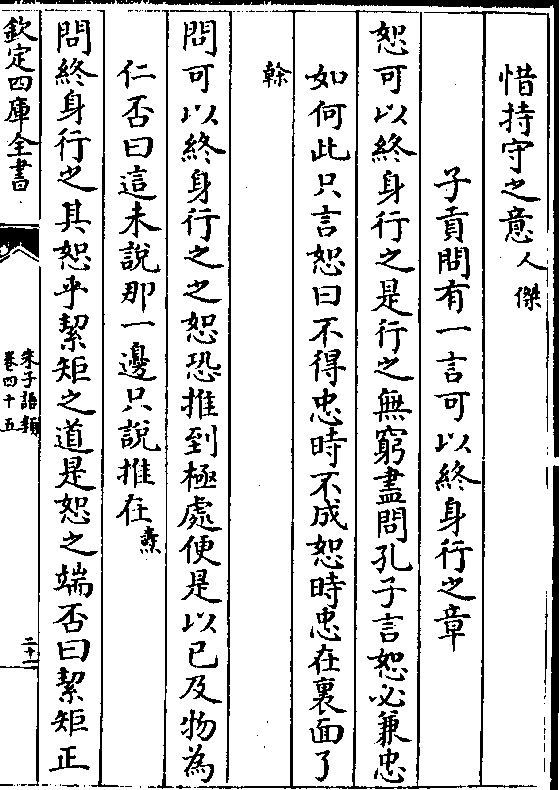 惜持守之意人傑
子貢問有一言可以終身行之章
恕可以終身行之是行之無窮盡問孔子言恕必兼忠
如何此只言恕曰不得忠時不成恕時忠在裏面了
榦
問可以終身行之之恕恐推到極處便是以已及物為
仁否曰這未說那一邊只說推在燾
問終身行之其恕乎絜矩之道是恕之端否曰絜矩正
欽定四庫全書
朱子語類
卷四十五
二十一